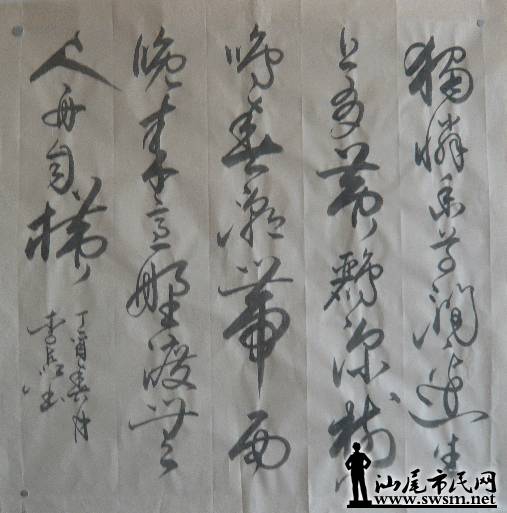 獨憐幽草澗邊生
上有黄鸝深樹
鳴春潮帶雨
晚来急野渡無
人舟自横
丁酉春月
汕尾市民网
www.swsm.net